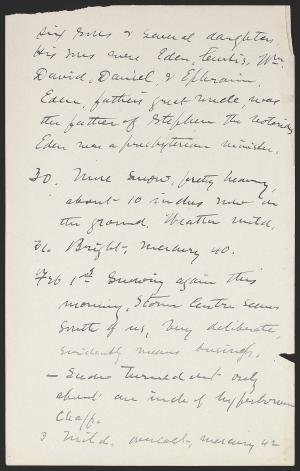 six sons & several daughters.
His sons were Eden, Curtis, Wm.
David, Daniel, & Ephraim.
Eden, father's great uncle, was
the father of Stephen the notorious
Eden was a presbyterian minister.
30. More snow, pretty heavy,
about 10 inches now on
the ground. Weather mild.
31. Bright, mercury 40.
Feb 1st Snowing again this
morning, Storm Centre seems
South of us, very deliberate,
evidently means business.
— Snow turned out only
about an inch of hyperborean
Chaff.
3 Mild. overcast, mercury 42